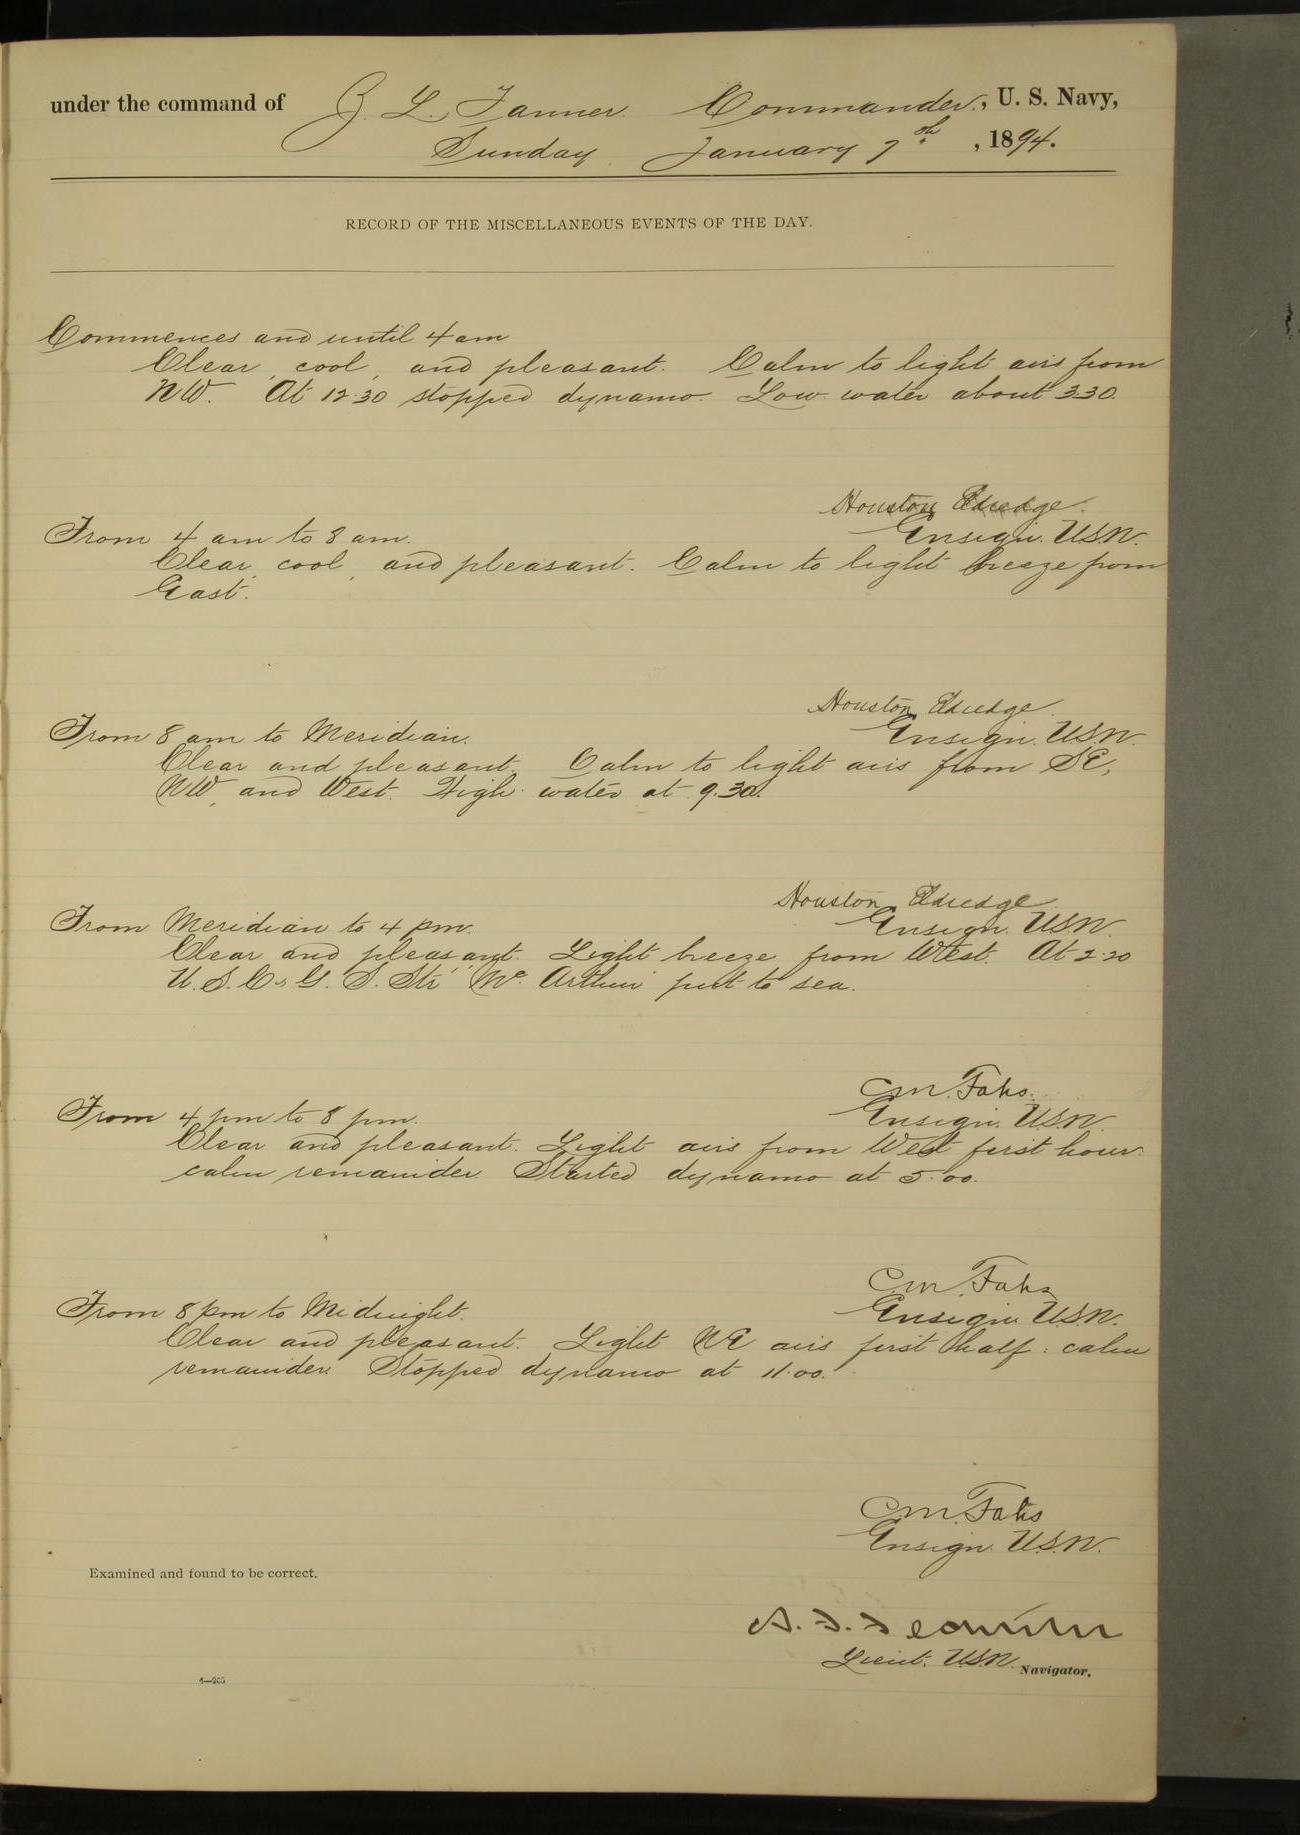 under the command of Z. L. Tanner. Commander., U. S. Navy,
Sunday January 7th, 1894.
RECORD OF THE MISCELLANEOUS EVENTS OF THE DAY.
Commences and until 4 am
Clear, cool, and pleasant. Calm to light airs from
NW. At 12.30 stopped dynamo. Low water about 3.30.
Houston Eldredge.
Ensign. U.S.N.
From 4 am to 8 am.
Clear, cool, and pleasant. Calm to light breeze from
East.
Houston Eldredge.
Ensign. U.S.N.
From 8 am to Meridian.
Clear and pleasant. Calm to light airs from SE,
NW, and West. High water at 9.30.
Houston Eldredge.
Ensign. U.S.N.
From Meridian to 4 pm.
Clear and pleasant. Light breeze from West. At 2.20
U.S.C. & G. S. Str "Mc Arthur" put to sea.
C.M. Fahs.
Ensign. U.S.N.
From 4 pm to 8 pm.
Clear and pleasant. Light airs from West first hour:
calm remainder. Started dynamo at 5.00.
C.M. Fahs
Ensign. U.S.N.
From 8 pm to Midnight.
Clear and pleasant. Light NE airs first half: calm
remainder. Stopped dynamo at 11.00.
C.M. Fahs
Ensign. U.S.N.
Examined and found to be correct.
A. F.
Lieut. U.S.N. Navigator.